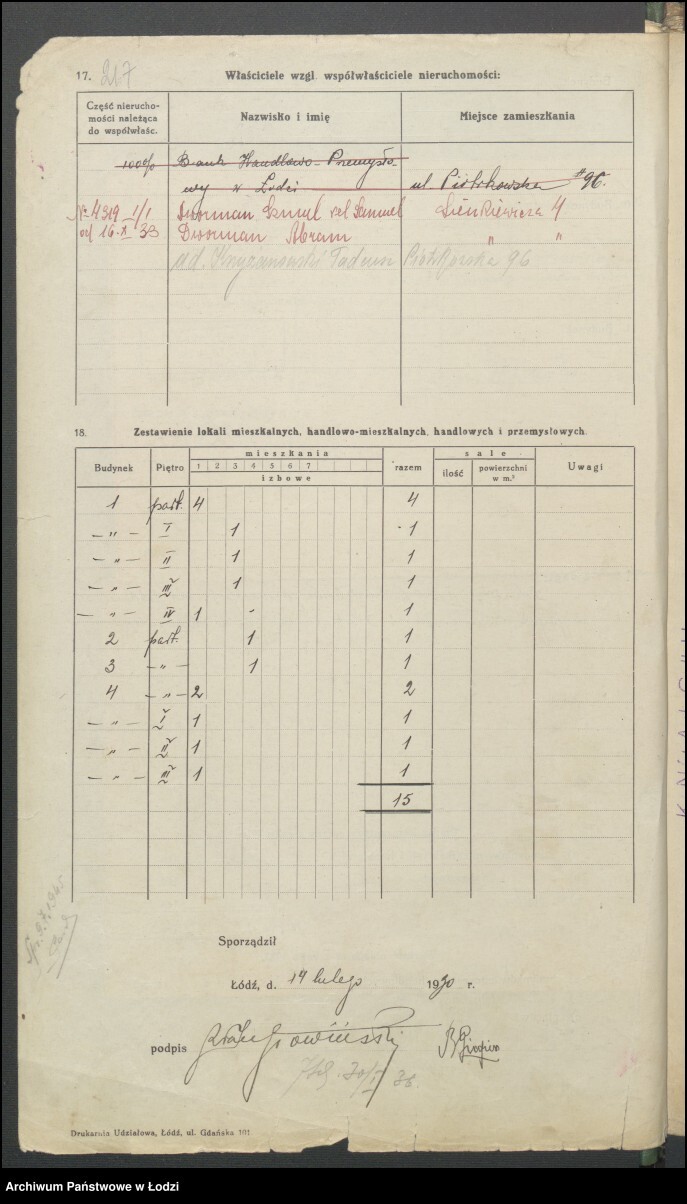 17. 217 Właściciele wzgl. współwłaściciele nieruchomości:
Część nierucho-
mości należąca
do współwłaśc.
Nazwisko i imię
Miejsce zamieszkania
100% Bank Handlowo-Przemysło-
wy w Łodzi ul. Piotrkowska # 96.
№ 4319 I/1 Dworman Szmul vel Samuel Sienkiewicza 4
od 16.X 33 Dworman Abram " "
ad. Tadeusz Piotrkowska 96
18. Zestawienie lokali mieszkalnych, handlowo-mieszkalnych, handlowych i przemysłowych.
Budynek Piętro mieszkania razem sale Uwagi
1 2 3 4 5 6 7
izbowe
ilość powierzchni w m.²
1 part. 4 4
— " — I 1 1
— " — II 1 1
— " — III 1 1
— " — IV 1 - 1
2 part. 1 1
3 — " — 1 1
4 — " — 2 2
— " — I 1 1
— " — II 1 1
— " — III 1 1
15
Sporządził
Łódź, d. 14 lutego 1930 r.
podpis
Drukarnia Udziałowa, Łódź, ul. Gdańska 101.
Archiwum Państwowe w Łodzi